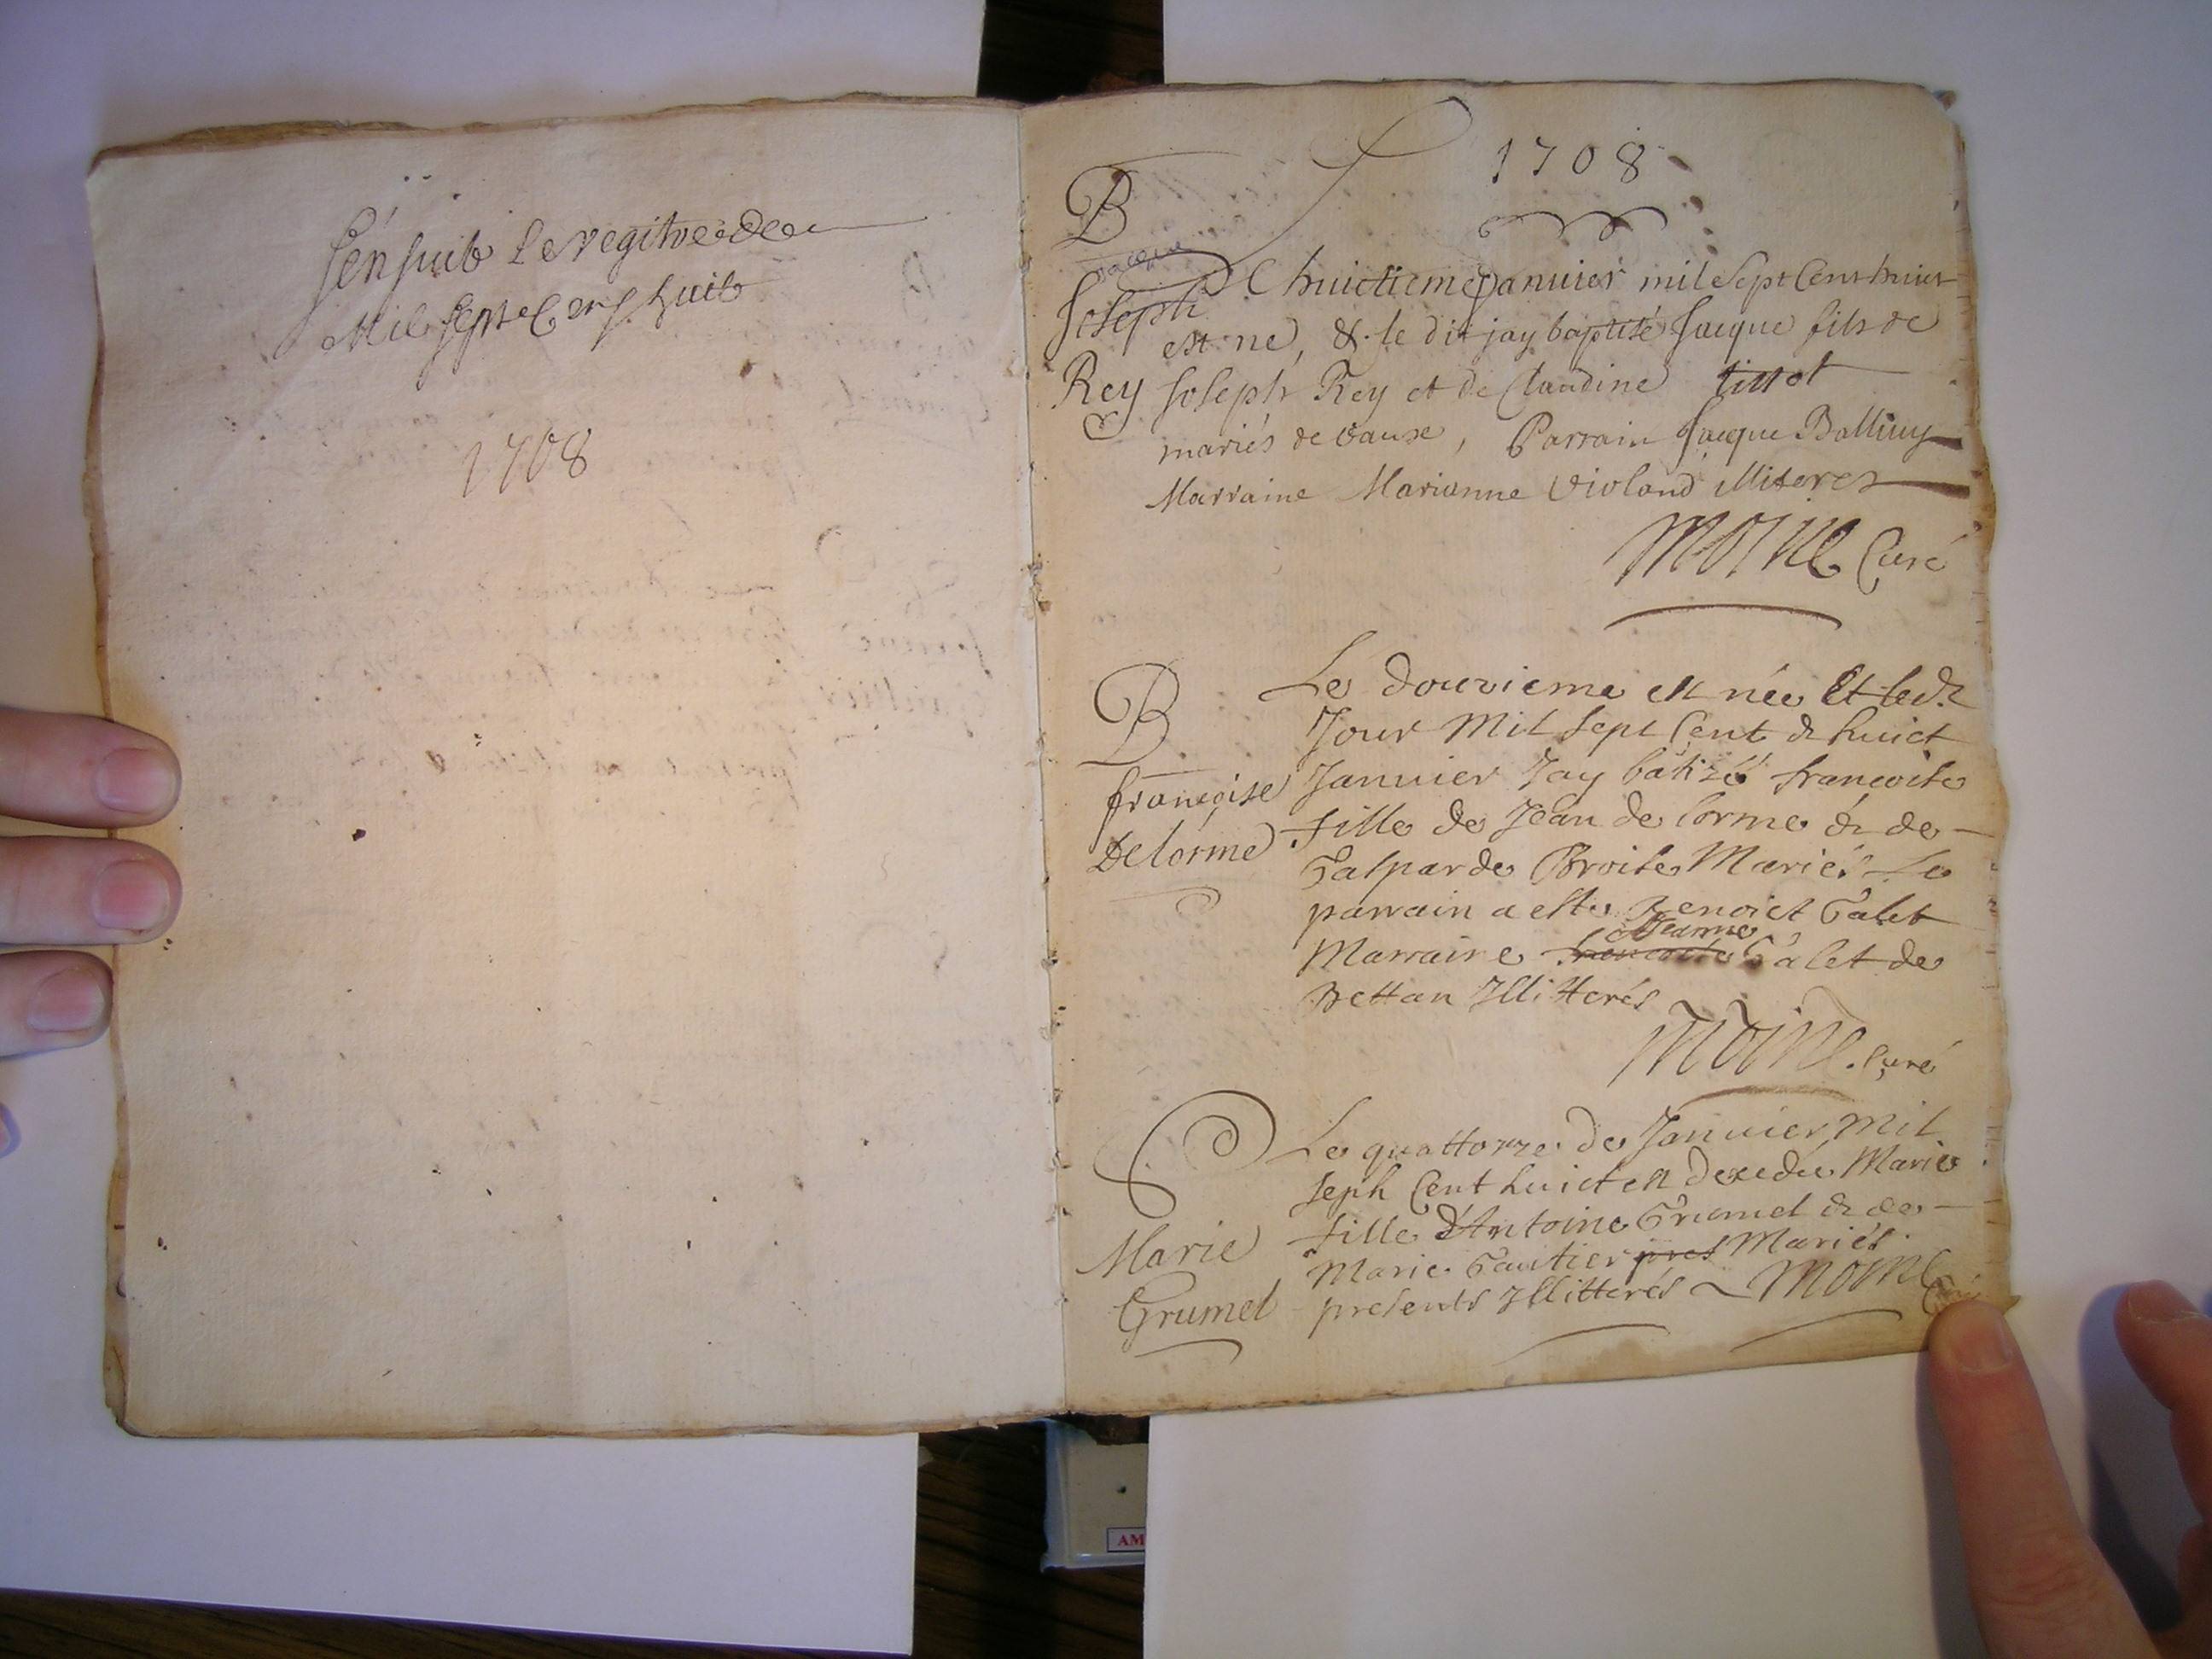 S'en suit Le regitre de
Mil sept Cens huit
1708
1708
B
jacque
Joseph
Rey
Le huictieme Januier mil sept Cent huict
est né, & le dit jay baptisé Jacque fils de
Joseph Rey et de Claudine tissot
mariés de vaux, Parrain Jacque Balliuy
Marraine Marianne Violand illiteres
Moine Curé
B
françoise
Delorme
Le douzieme est née Et led.
Jour Mil sept Cent & huict
Januier Jay batizé francoise
fille de Jean de lorme & de
Gasparde Broise Mariés Le
parrain a este Benoict Galet
Marraine francoise Jeanne Galet de
Bettan Illitterés
Moine. Curé
Marie
Grumel
Le quattorze de Januier Mil
seph Cent huict est decedée Marie
fille d'Antoine Grumel & de
Marie Gautier pres Mariés
presents Illitterés Moine
Curé
AM